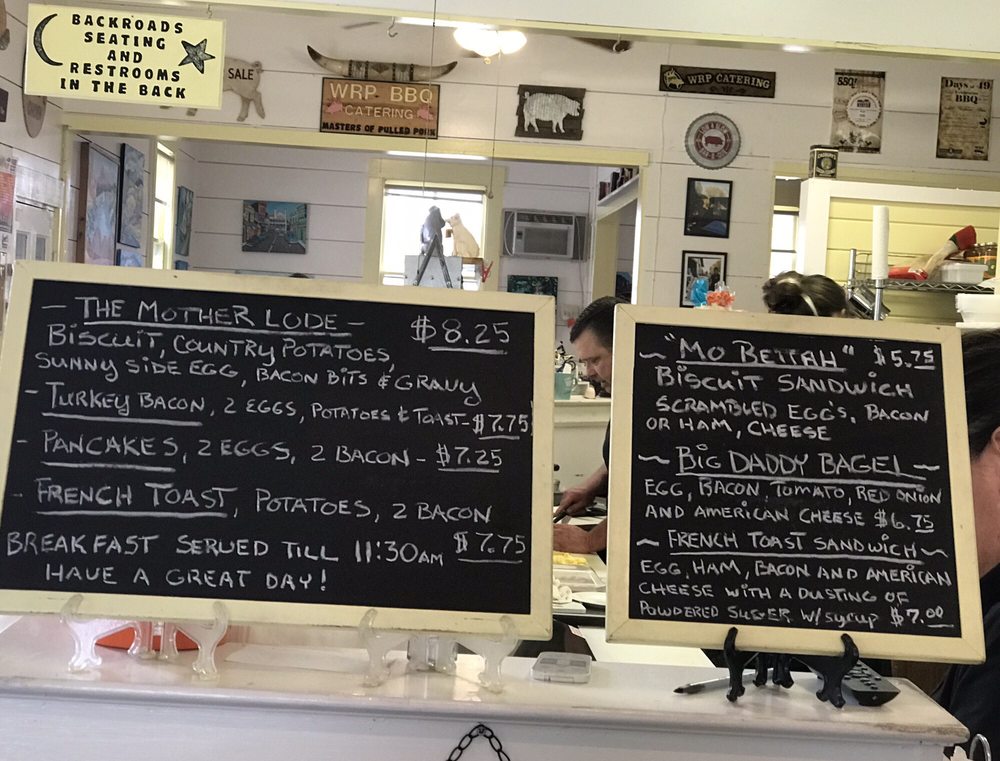 BACKROADS
SEATING
AND
RESTROOMS
IN THE BACK
SALE
WRP BBQ
CATERING
MASTERS OF PULLED PORK
WRP CATERING
BBQ
Days of 49
BBQ
- THE MOTHER LODE - $8.25
BISCUIT, COUNTRY POTATOES,
SUNNY SIDE EGG, BACON BITS & GRAVY
- TURKEY BACON, 2 EGGS, POTATOES & TOAST - $7.75
- PANCAKES, 2 EGGS, 2 BACON - $7.25
- FRENCH TOAST, POTATOES, 2 BACON
$7.75
BREAKFAST SERVED TILL 11:30AM
HAVE A GREAT DAY!
~ "MO BETTAH" $5.75
BISCUIT SANDWICH
SCRAMBLED EGG'S, BACON
OR HAM, CHEESE
~ BIG DADDY BAGEL ~
EGG, BACON, TOMATO, RED ONION
AND AMERICAN CHEESE $6.75
~ FRENCH TOAST SANDWICH ~
EGG, HAM, BACON AND AMERICAN
CHEESE WITH A DUSTING OF
POWDERED SUGER W/SYRUP $7.00